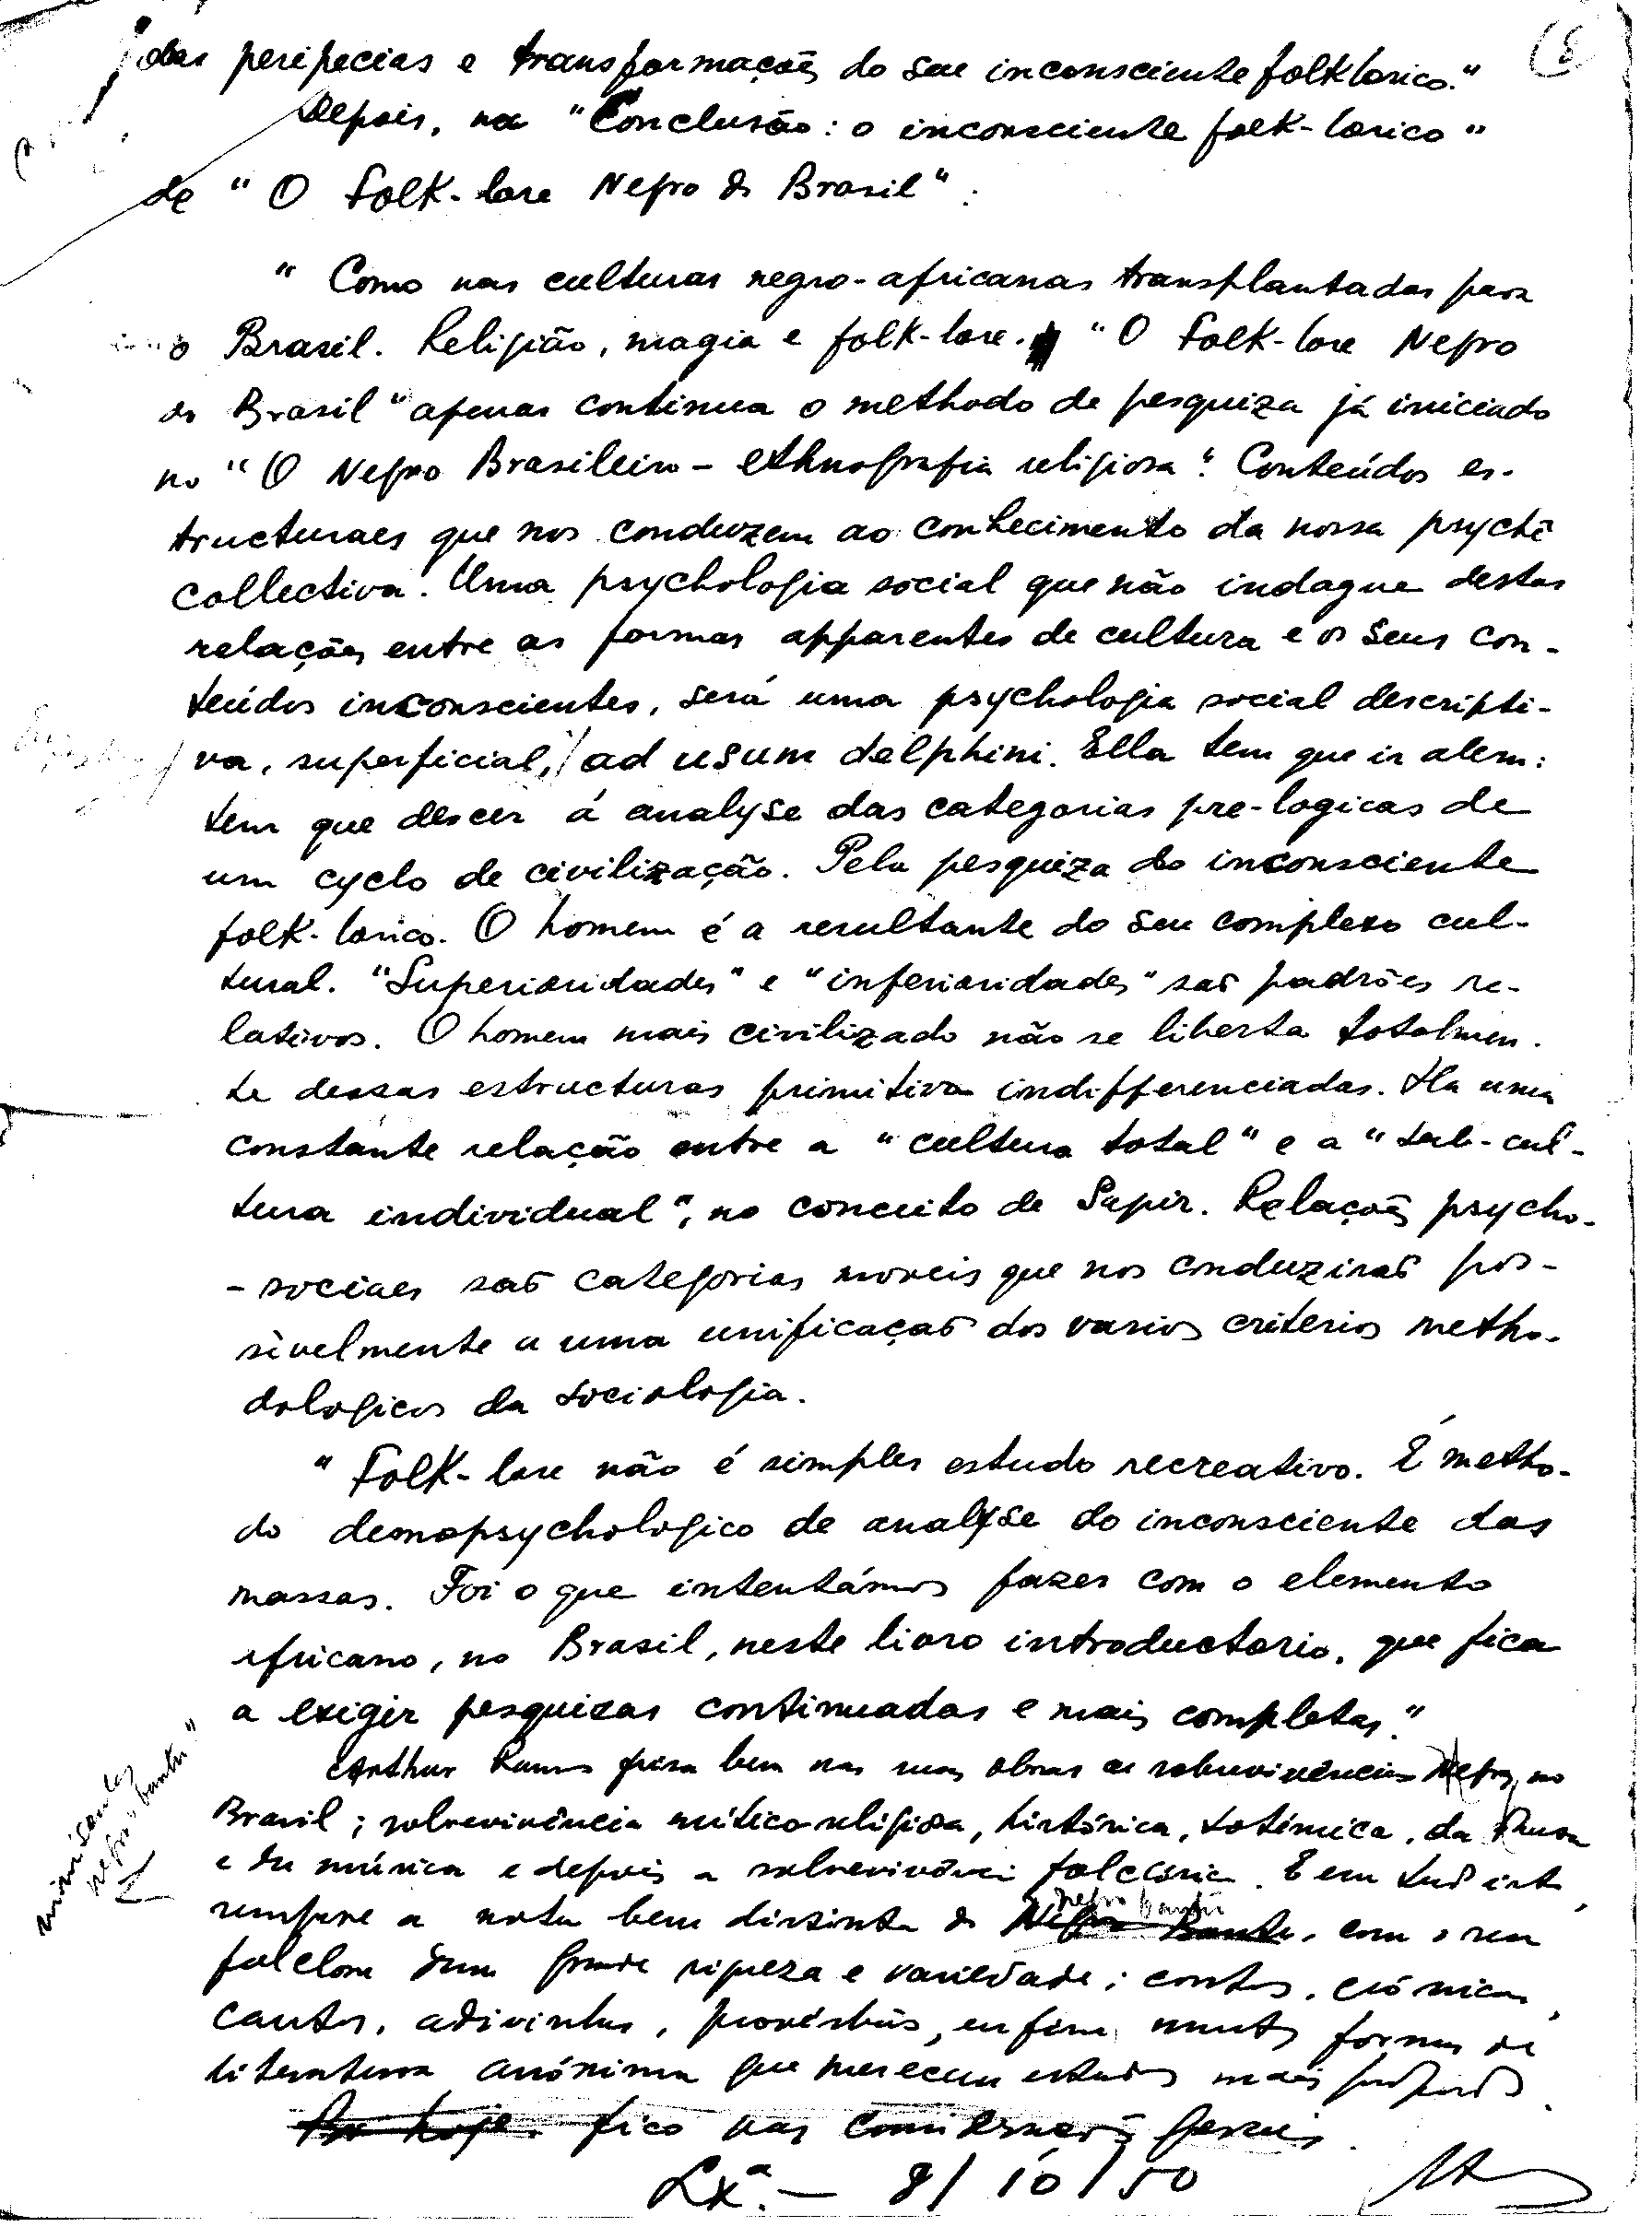 das peripecias e transformações do seu inconsciente folklorico."
Depois, na "Conclusão: o inconsciente folk-lorico"
de "O Folk-lore Negro do Brasil":
" Como nas culturas negro-africanas transplantadas para
o Brasil. Religião, magia e folk-lore. "O Folk-lore Negro
do Brasil" apenas continua o methodo de pesquiza já iniciado
no "O Negro Brasileiro - ethnografia religiosa". Conteúdos es-
tructuraes que nos conduzem ao conhecimento da nossa psychê
collectiva. Uma psychologia social que não indague destas
relações entre as formas apparentes de cultura e os seus con-
teúdos inconscientes, será uma psychologia social descripti-
va, superficial, ad usum delphini. Ella tem que ir alem:
tem que descer á analyse das categorias pre-logicas de
um cyclo de civilização. Pela pesquiza do inconsciente
folk-lorico. O homem é a resultante do seu complexo cul-
tural. "Superioridades" e "inferioridades" são padrões re-
lativos. O homem mais civilizado não se liberta totalmen-
te dessas estructuras primitivas indifferenciadas. Ha uma
constante relação entre a "cultura total" e a "sub-cul-
tura individual", no conceito de Sapir. Relações psycho-
-sociaes são categorias moveis que nos conduzirão pos-
sivelmente a uma unificação dos varios criterios metho-
dologicos da sociologia.
" Folk-lore não é simples estudo recreativo. É metho-
do demopsychologico de analyse do inconsciente das
massas. Foi o que intentámos fazer com o elemento
africano, no Brasil, neste livro introductorio, que fica
a exigir pesquizas continuadas e mais completas."
Arthur Ramos frisa bem nas suas obras as sobrevivências Negras no
Brasil; sobrevivência mítico-religiosa, histórica, totémica, da dansa
e da música e depois a sobrevivência folclórica. E em tudo isto
sempre a nota bem distinta do negro bantu, com o seu
folclore dum grande riqueza e variedade; contos, crónicas,
cantos, adivinhas, provérbios, enfim, muitas formas de
literatura anónima que merecem estudos mais profundos.
Por hoje, fico nas considerações gerais.
Lxª. - 8/10/50
negro bantu"